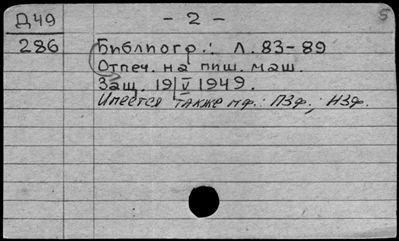 Д49 - 2 - 5
286 Библиогр.: л. 83-89
Отпеч. на пиш. маш.
Защ. 19/V 1949.
Имеется также мф.: ПЗф.; НЗф.